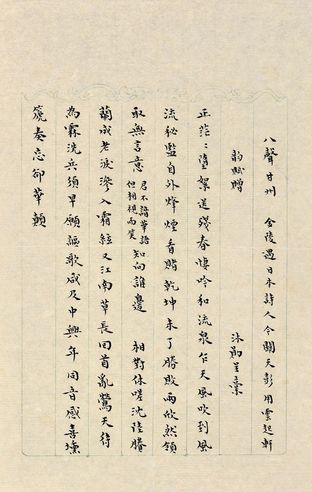 八聲甘州 金陵遇日本詩人今關天彭用雲起軒
韵賦贈 沐勛呈稾
正茫〻墮絮送殘春悽吟和流泉乍天風吹到風
流秘監自外烽煙看賭乾坤未了勝敗兩欣然領
取無言意 君不語華語但相視而笑 知向誰邊 相對休嗟沈陸賸
蘭成老淚滲入霜絃又江南草長回首亂鶯天待
為霖洗兵須早願謳歌咸及中興年同音感喜壎
篪奏忘卻華顛